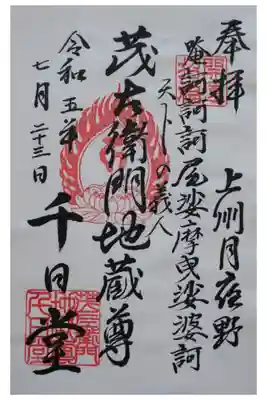 奉拝
上州月夜野
唵訶訶訶尾娑摩曳娑婆訶
天下の義人
茂左衛門地蔵尊
令和五年
七月二十三日
千日堂